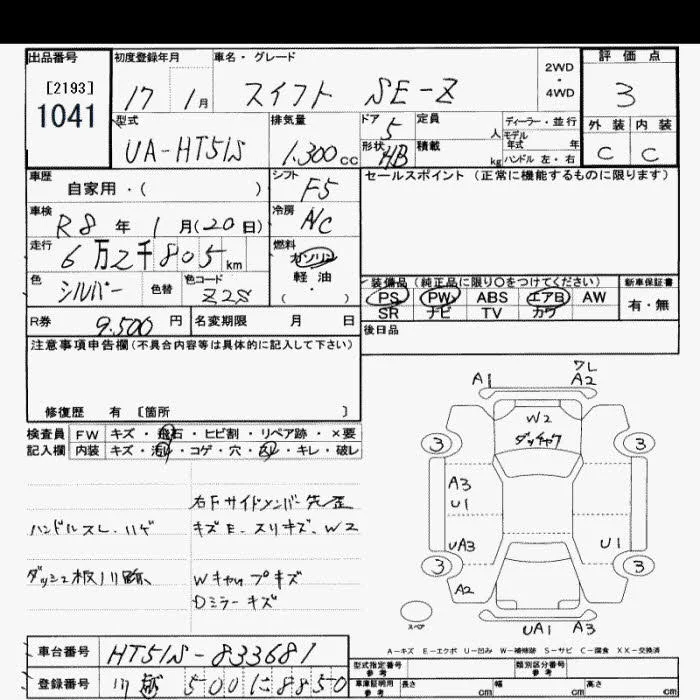 出品番号 初度登録年月 車名・グレード 評価点
[2193]
1041
17 1月 スイフト SE-Z 2WD・4WD 3
型式 排気量 ドア 定員 ディーラー・並行 外装 内装
UA-HT51S 1.300cc 5 人 モデル年式 年
形状 HB 積載 kg ハンドル 左・右 C C
車歴 シフト セールスポイント(正常に機能するものに限ります)
自家用・( ) F5
車検 冷房
R8年 1月(20日) A/C
走行 燃料
6万2千805km ガソリン
色 色替 色コード 軽・油
シルバー Z2S ・( )
装備品(純正品に限り○をつけてください) 新車保証書
PS PW ABS エアB AW 有・無
SR ナビ TV カワ
R券 9.500円 名変期限 月 日 後日品
注意事項申告欄(不具合内容等は具体的に記入して下さい)
修復歴 有 [箇所 ]
検査員 FW キズ・飛石・ヒビ割・リペア跡・×要
記入欄 内装 キズ・汚れ・コゲ・穴・凹・キレ・破レ
右Fサイドメンバー先歪
ハンドルスレ.ハゲ キズE.スリキズ.W2
ダッシュ板ノリ跡 Wキャップキズ
Dミラーキズ
ワレ
A1 A2
W2
3 3
A3
U1
UA3 U1
3 3
A2
スペア UA1 A3
A-キズ E-エクボ U-凹み W-補修跡 S-サビ C-腐食 XX-交換済
車台番号 HT51S-833681
登録番号 川越 500 に 8850
型式指定番号 参考 類別区分番号 参考
車庫証明用 参考 長さ cm 幅 cm 高さ cm